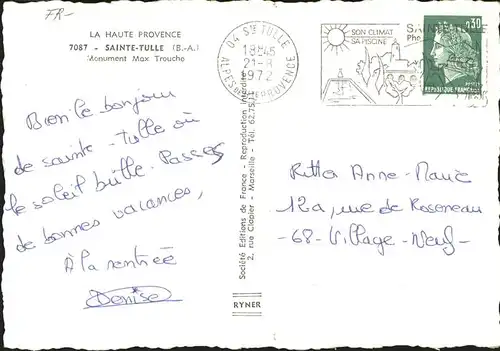 FR-
LA HAUTE PROVENCE
7087 - SAINTE-TULLE (B.-A.)
Monument Max Trouche
Bien le bonjour
de sainte-Tulle où
le soleil brille. Passez
de bonnes vacances,
A la rentrée
Denise
Société Editions de France - Reproduction Interdite
2, rue Clapier - Marseille - Tél. 62.75
RYNER
04 STE TULLE
18H45
21-8
1972
ALPES DE HTE PROVENCE
SON CLIMAT
SA PISCINE
SAINTE-TULLE
0,30
REPUBLIQUE FRANÇAISE
Ritter Anne-Marie
12a, rue de Roseneau
-68-Village-Neuf-